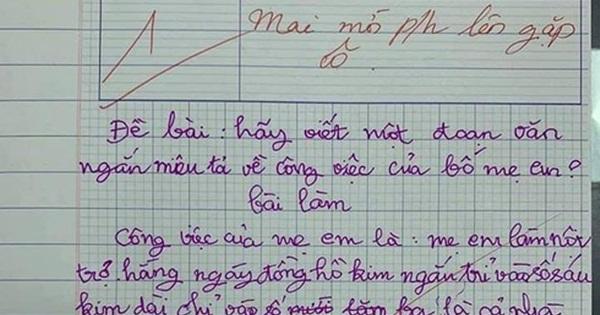 1
Mai mời p/h lên gặp
cô
Đề bài: hãy viết một đoan văn
ngắn miêu tả về công việc của bố mẹ em?
bài làm
Công việc của mẹ em là: mẹ em làm nôi
trợ. hằng ngày đồng hồ kim ngắn trỉ vào số sáu
kim dài chỉ vào số mười lăm là cả nhà